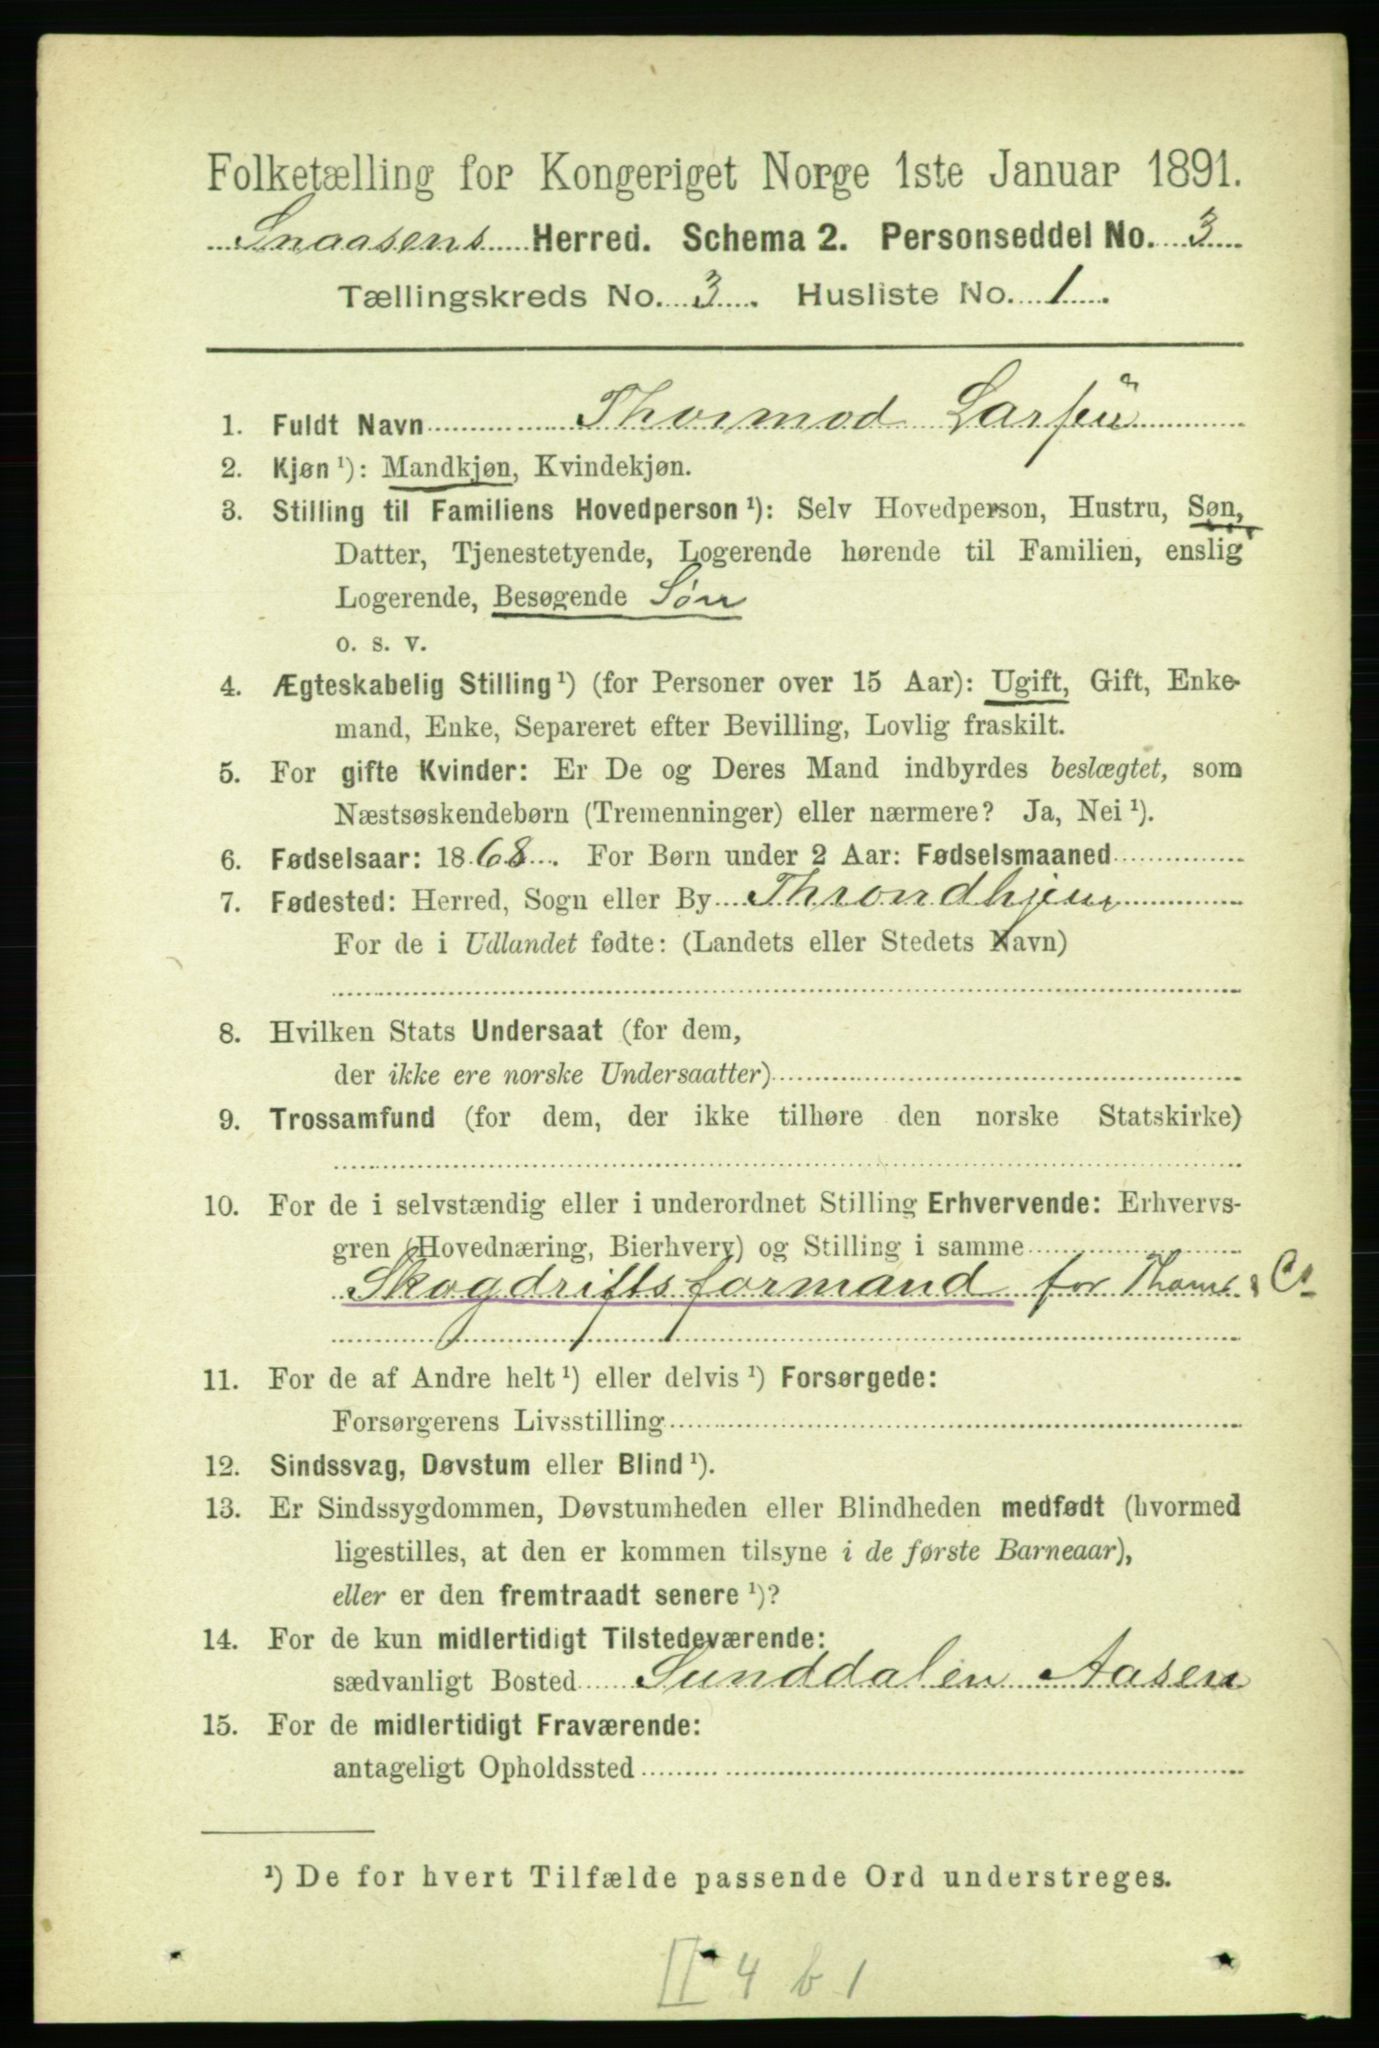 Folketælling for Kongeriget Norge 1ste Januar 1891.
Snaasens Herred. Schema 2. Personseddel No. 3
Tællingskreds No. 3. Husliste No. 1.
1. Fuldt Navn Thormod Larsen
2. Kjøn ¹): Mandkjøn, Kvindekjøn.
3. Stilling til Familiens Hovedperson ¹): Selv Hovedperson, Hustru, Søn,
Datter, Tjenestetyende, Logerende hørende til Familien, enslig
Logerende, Besøgende Søn
o. s. v.
4. Ægteskabelig Stilling ¹) (for Personer over 15 Aar): Ugift, Gift, Enke-
mand, Enke, Separeret efter Bevilling, Lovlig fraskilt.
5. For gifte Kvinder: Er De og Deres Mand indbyrdes beslægtet, som
Næstsøskendebørn (Tremenninger) eller nærmere? Ja, Nei ¹).
6. Fødselsaar: 1868. For Børn under 2 Aar: Fødselsmaaned
7. Fødested: Herred, Sogn eller By Throndhjem
For de i Udlandet fødte: (Landets eller Stedets Navn)
8. Hvilken Stats Undersaat (for dem,
der ikke ere norske Undersaatter)
9. Trossamfund (for dem, der ikke tilhøre den norske Statskirke)
10. For de i selvstændig eller i underordnet Stilling Erhvervende: Erhvervs-
gren (Hovednæring, Bierhverv) og Stilling i samme
Skogdriftsformand for Thams & Co
11. For de af Andre helt ¹) eller delvis ¹) Forsørgede:
Forsørgerens Livsstilling
12. Sindssvag, Døvstum eller Blind ¹).
13. Er Sindssygdommen, Døvstumheden eller Blindheden medfødt (hvormed
ligestilles, at den er kommen tilsyne i de første Barneaar),
eller er den fremtraadt senere ¹)?
14. For de kun midlertidigt Tilstedeværende:
sædvanligt Bosted Sunddalen Aasen
15. For de midlertidigt Fraværende:
antageligt Opholdssted
¹) De for hvert Tilfælde passende Ord understreges.
4 b 1